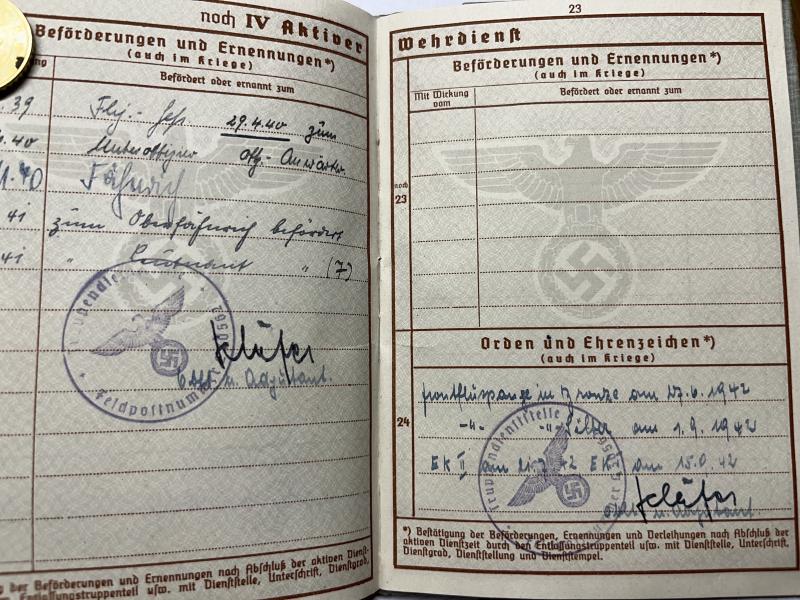 noch IV Aktiver
Beförderungen und Ernennungen*)
(auch im Kriege)
Befördert oder ernannt zum
.39 Flg.- Gefr 29.4.40 zum
.40 Unteroffizier Ofz.- Anwärter
.40 Fähnrich
41 zum Oberfähnrich befördert
41 " Leutnant " (7)
Klüfer
u. Adjutant.
Feldpostnummer
g der Beförderungen und Ernennungen nach Abschluß der aktiven Dienst-
Entlassungstruppenteil usw. mit Dienststelle, Unterschrift, Dienstgrad,
23
Wehrdienst
Beförderungen und Ernennungen*)
(auch im Kriege)
Mit Wirkung vom
Befördert oder ernannt zum
noch
23
Orden und Ehrenzeichen*)
(auch im Kriege)
24
Frontflugspange in Bronze am 27.6.1942
-"- -"- Silber am 1.9.1942
EK II am 42 EK am 42
Truppendienststelle
Klüfer
u. Adjutant
*) Bestätigung der Beförderungen, Ernennungen und Verleihungen nach Abschluß der
aktiven Dienstzeit durch den Entlassungstruppenteil usw. mit Dienststelle, Unterschrift,
Dienstgrad, Dienststellung und Dienststempel.